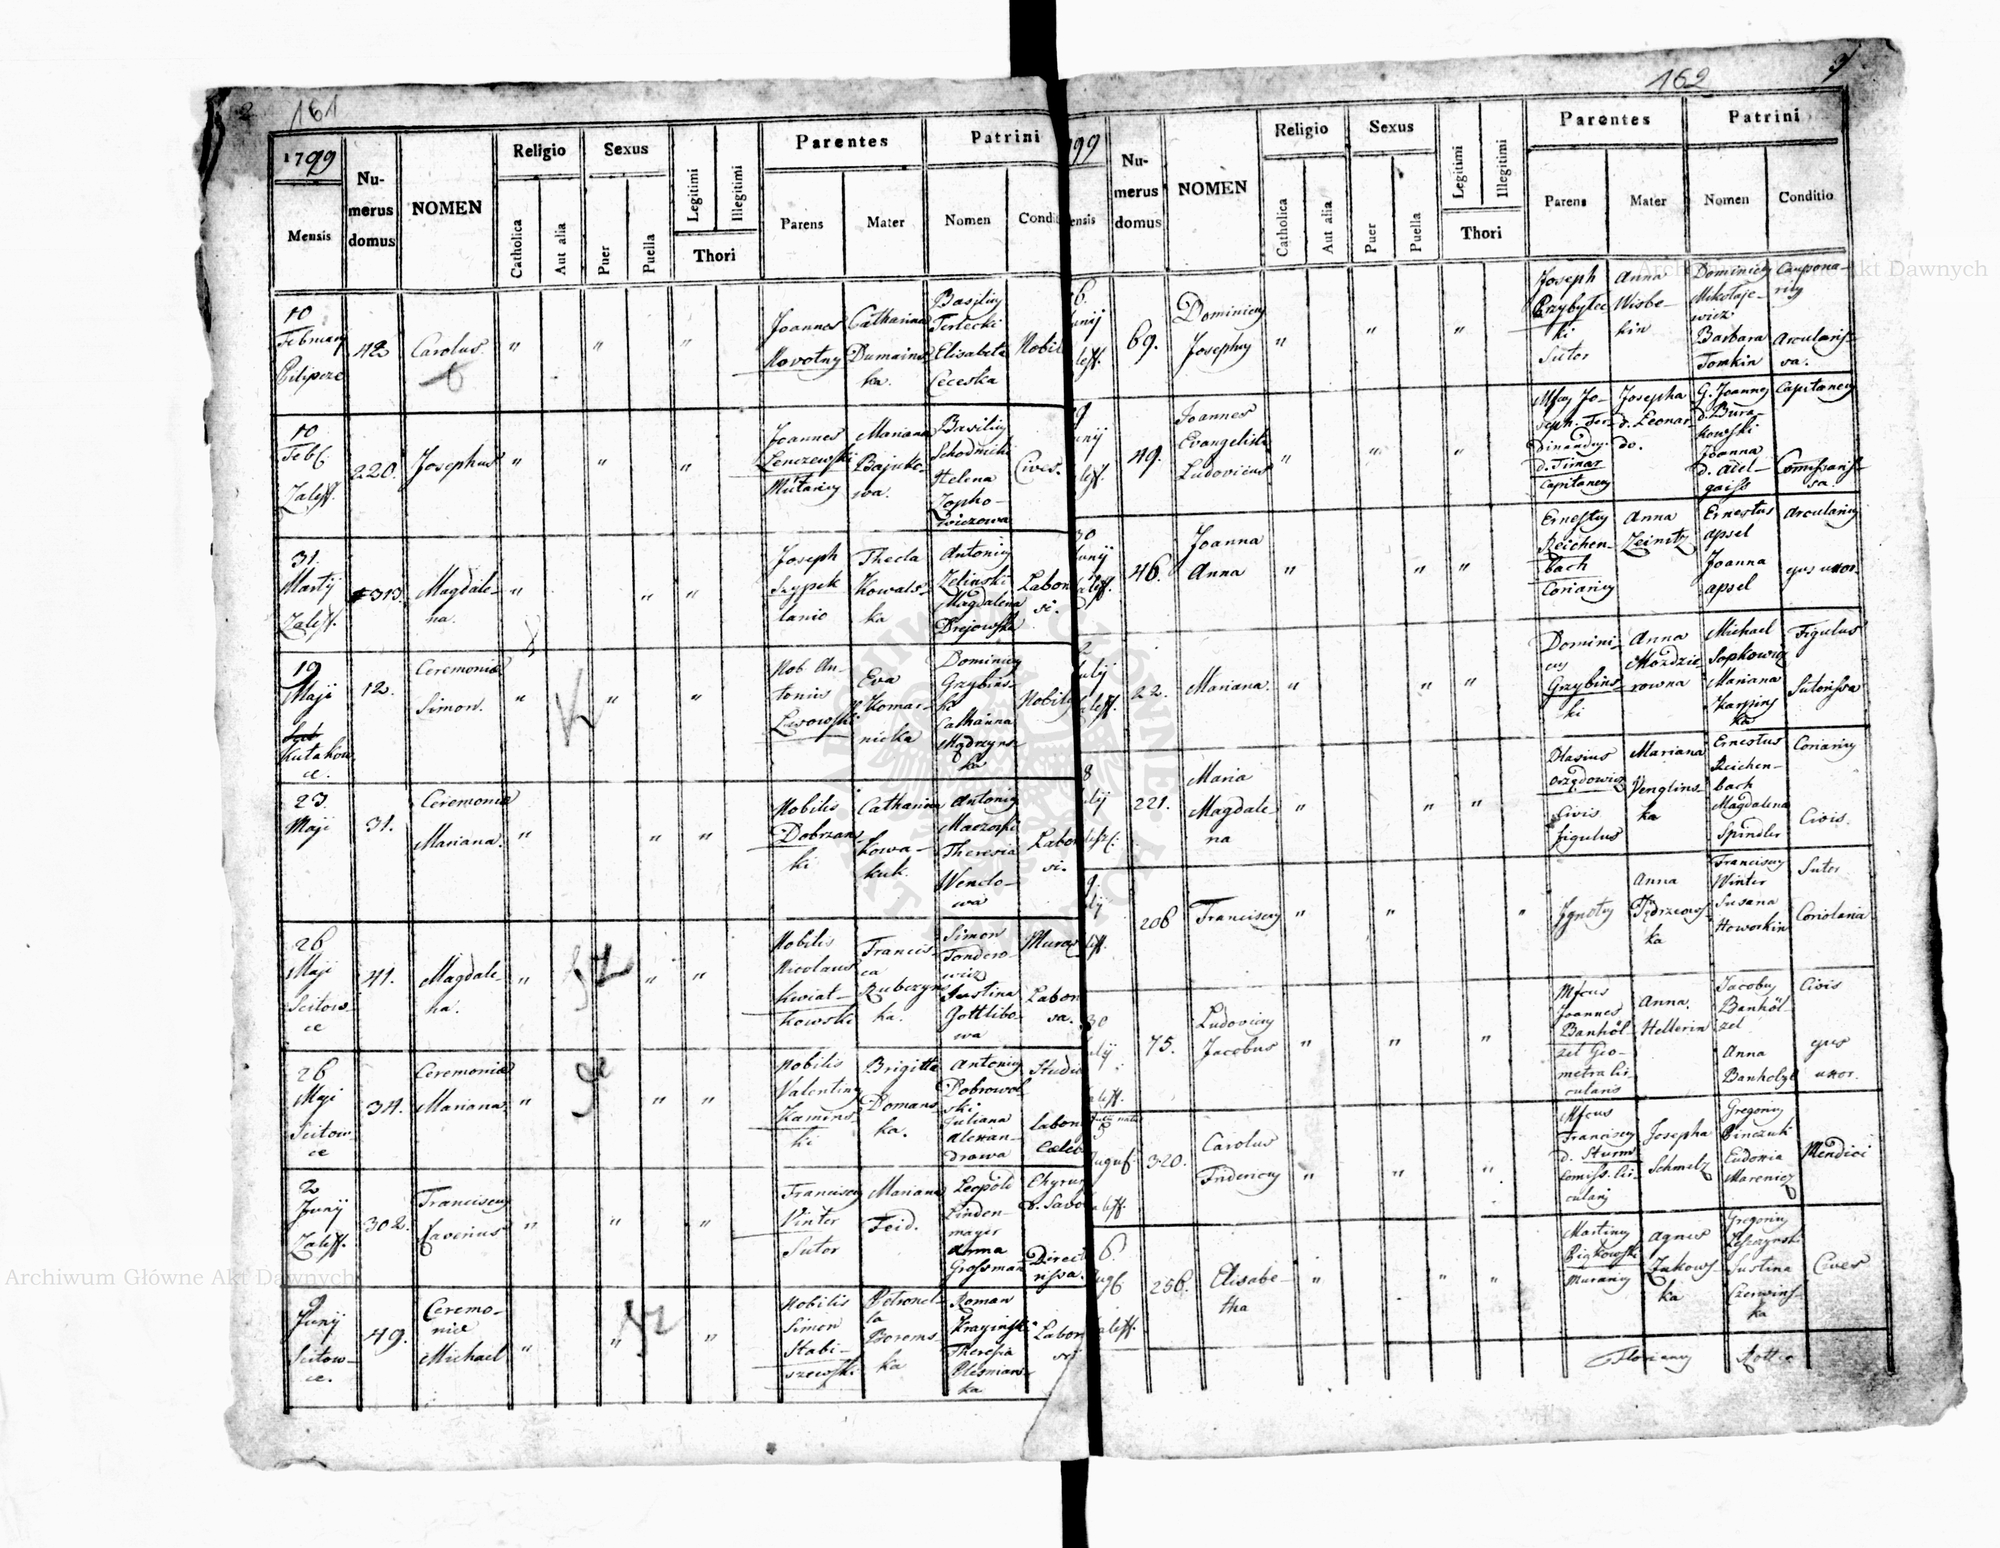 2 161
1799
Mensis
Numerus domus
NOMEN
Religio
Catholica
Aut alia
Sexus
Puer
Puella
Legitimi
Illegitimi
Thori
Parentes
Parens
Mater
Patrini
Nomen
Condit
10
February
Pilipcze
42
Carolus
"
"
"
Joannes
Novotny
Catharina
Dumains
ka.
Basiliy
Terlecki
Elisabeta
Ceceska
Nobil
10
Feb
Zaleß.
220.
Josephus
"
"
"
Joannes
Lenczewski
Murariy
Mariana
Bajuko-
wa.
Basiliy
Schodnicki
Helena
Zopho-
wiczowa
Cives.
31.
Martij
Zaleß.
313.
Magdale-
na.
"
"
"
Joseph
Szypek
lanio
Thecla
Kowals-
ka
Antoniy
Zelinski
Magdalena
Drejowska
Labori
si.
19
Maji
Kutakow
ce.
12.
Ceremoniæ
Simon.
"
"
"
Nob An-
tonius
Lwowski
Eva
Komar-
nicka
Dominiciy
Grzybins-
ki
Catharina
Mądrzyns-
ka
Nobiliy
23.
Maji
31.
Ceremoniæ
Mariana.
"
"
"
Nobilis
Dobrzans-
ki
Catharina
Kowa-
kuk.
Antoniy
Maczoski
Theresia
Wenclo-
wa
Labori
si.
26
Maji
Scitow-
ce
41.
Magdale-
na.
"
"
"
Nobilis
Nicolaus
Kwiat-
kowski
Francis-
ca
Rubczyns
ka.
Simon
Tondoro-
wicz
Justina
Gottlibo-
wa
Murar
Labori
sa.
26
Maji
Scitow-
ce
34.
Ceremoniæ
Mariana.
"
"
"
Nobilis
Valentiny
Kamins-
ki
Brigitte
Domans
ka.
Antoniy
Dobrowol
ski
Juliana
Alexan-
drowa
Studio
labori
Caleb
2
Junij
Zaleß.
302.
Francisciy
Xaverius
"
"
"
Francisciy
Vinter
Sutor
Mariana
Feid.
Leopold
Linden-
mayer
Anna
Grosman
Chyrur
Direct
rissa.
9
Junij
Scitow-
ce.
49.
Ceremo-
niæ
Michael
"
"
"
Nobilis
Simon
Stabi-
szewski
Petronel-
la
Borems
ka
Roman
Krayinski
Theresia
Plesnians-
ka
Labori
si
162 3
99
ensis
Numerus domus
NOMEN
Religio
Catholica
Aut alia
Sexus
Puer
Puella
Legitimi
Illegitimi
Thori
Parentes
Parens
Mater
Patrini
Nomen
Conditio
6.
unij
leß.
69.
Dominiciy
Josephy
"
"
"
Joseph
Przybylec
ki
Sutor
Anna
Wisbe-
kin
Dominiciy
Mikołaje-
wicz
Barbara
Tomkin
Caupona-
riy
Arculariß-
sa.
9
unij
leß.
49.
Joannes
Evangelista
Ludovicus
"
"
"
Mfcy Jo-
seph. Fer-
dinandy.
d. Timar
Capitaney
Josepha
d. Leonar
do.
G. Joanney
d. Bura-
kowski
Joanna
d. Adel-
gaiss
Capitaney
Comissariß-
sa.
30
unij
aleß.
46.
Joanna
Anna
"
"
"
Ernestiy
Reichen-
bach
Coriariy
Anna
Zeinitz
Ernestus
Apsel
Joanna
Apsel
Arculariy
ejus uxor.
2
ulij
aleß.
22.
Mariana.
"
"
"
Domini-
cy
Grzybins-
ki
Anna
Mozdzie-
rowna
Michael
Sopkowicz
Mariana
Skarpins
ka
Figulus
Sutorissa
8
ulij
221.
Maria
Magdale-
na
"
"
"
Blasius
Orzędowicz
Civis
figulus
Mariana
Venglins-
ka
Ernestus
Reichen-
bach
Magdalena
Spindler
Coriariy
Civis.
9.
lij
leß.
206
Francisciy
"
"
"
Ignoty
Anna
Jędrzeiows
ka
Francisciy
Winter
Susana
Howorkin
Sutor
Coriolaria
30
ulij
aleß.
75.
Ludoviciy
Jacobus
"
"
"
Mfcus
Joannes
Banhöl-
zel Geo-
metra Cir-
cularis
Anna
Hellerin
Jacoby
Banhöl-
zel
Anna
Banholzl
Civis
ejus
uxor.
5
August
aleß.
320.
Carolus
Fridericiy
"
"
"
Mfcus
Francisciy
d. Sturm
Comiss. Cir-
culariy
Josepha
Schmelz
Gregoriy
Pinczuk
Eudoxia
Marenicz
Mendici
6.
Aug
aleß.
256.
Elisabe-
tha
"
"
"
Martiny
Piątkowski
Murariy
Agnes
Zukows-
ka
Gregoriy
Lesczynski
Justina
Czerwins-
ka
Cives
Floriany Kottie
Archiwum Główne Akt Dawnych
Archiwum Główne Akt Dawnych
ARCHIWUM GŁÓWNE AKT DAWNYCH